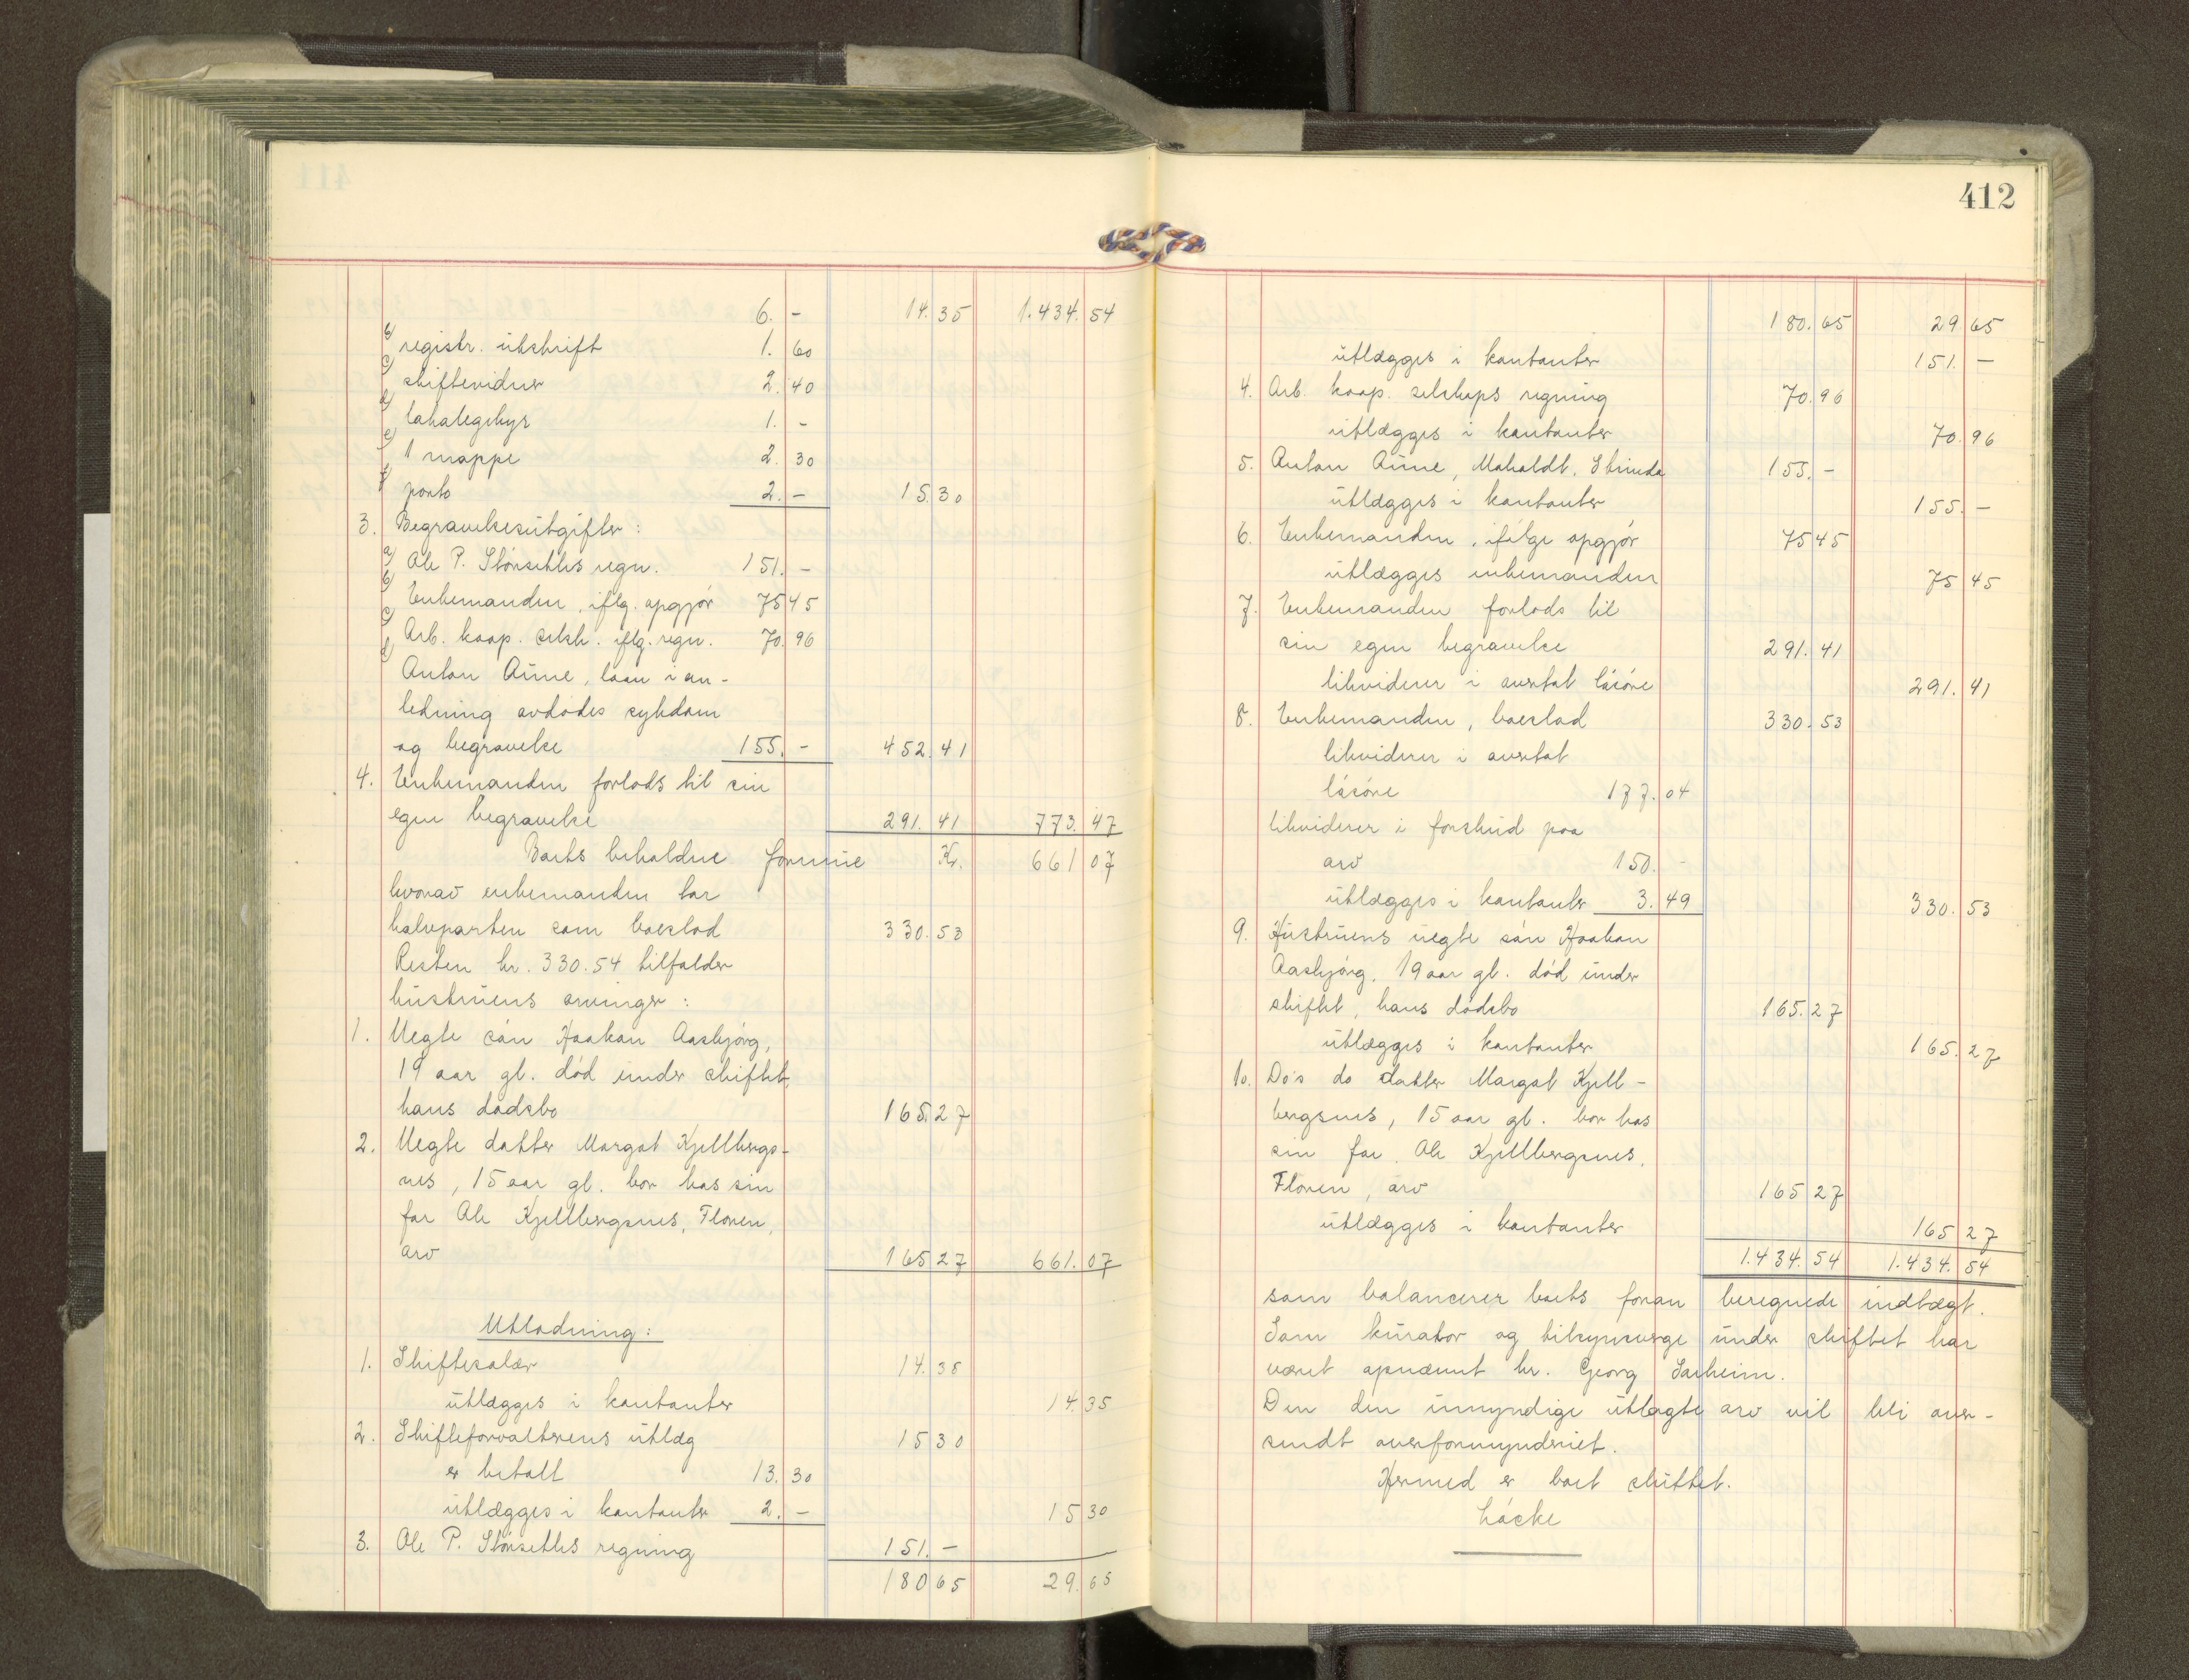 6. - 14.35 1.434.54
b) registr. utskrift 1. 60
c) skiftevidner 2. 40
d) lokalegebyr 1. -
e) 1 mappe 2. 30
f) porto 2. - 15.30
3. Begravelsesutgifter:
a) Ole P. Stórseths regn. 151. -
b) Enkemanden, iflg. opgjór 75 45
c) Arb. koop. selsk. iflg. regn. 70. 96
d) Anton Aune, laan i an-
ledning avdódes sykdom
og begravelse 155. - 452.41
4. Enkemanden forlods til sin
egen begravelse 291.41 773.47
Boets beholdne formue Kr. 661 07
hvorav enkemanden tar
halvparten som boeslod 330.53
Resten kr. 330.54 tilfalder
hustruens arvinger:
1. Uegte són Haakon Aasbjórg,
19 aar gl. dód under skiftet,
hans dódsbo 165.27
2. Uegte datter Margot Kjellbergs-
nes, 15 aar gl. bor hos sin
far Ole Kjellbergsnes, Floren,
arv 165 27 661.07
Utlodning:
1. Skiftesalær 14.35
utlægges i kontanter 14.35
2. Skifteforvalterens utlæg 15 30
er betalt 13. 30
utlægges i kontanter 2. - 15 30
3. Ole P. Stórseths regning 151. -
180 65 29.65
412
180.65 29 65
utlægges i kontanter 151. -
4. Arb. koop. selskaps regning 70.96
utlægges i kontanter 70.96
5. Anton Aune, Moholdt, Strinda 155. -
utlægges i kontanter 155. -
6. Enkemanden, ifólge opgjór 75 45
utlægges enkemanden 75 45
7. Enkemanden forlods til
sin egen begravelse 291.41
likviderer i avertat lósóre 291. 41
8. Enkemanden, boeslod 330.53
likviderer i avertat
lósóre 177.04
likviderer i forskud paa
arv 150. -
utlægges i kontanter 3. 49 330. 53
9. Hustruens uegte són Haakon
Aasbjórg, 19 aar gl. dód under
skiftet, hans dódsbo 165.27
utlægges i kontanter 165.27
10. Do's do datter Margot Kjell-
bergsnes, 15 aar gl. bor hos
sin far, Ole Kjellbergsnes,
Floren, arv 165 27
utlægges i kontanter 165 27
1.434.54 1.434.54
som balancerer boets foran beregnede indtægt.
Som kurator og tilsynsverge under skiftet har
været opnævnt hr. Georg Sarheim.
Den den umyndige utlagte arv vil bli over-
sendt overformynderiet.
Hermed er boet sluttet.
Lócke